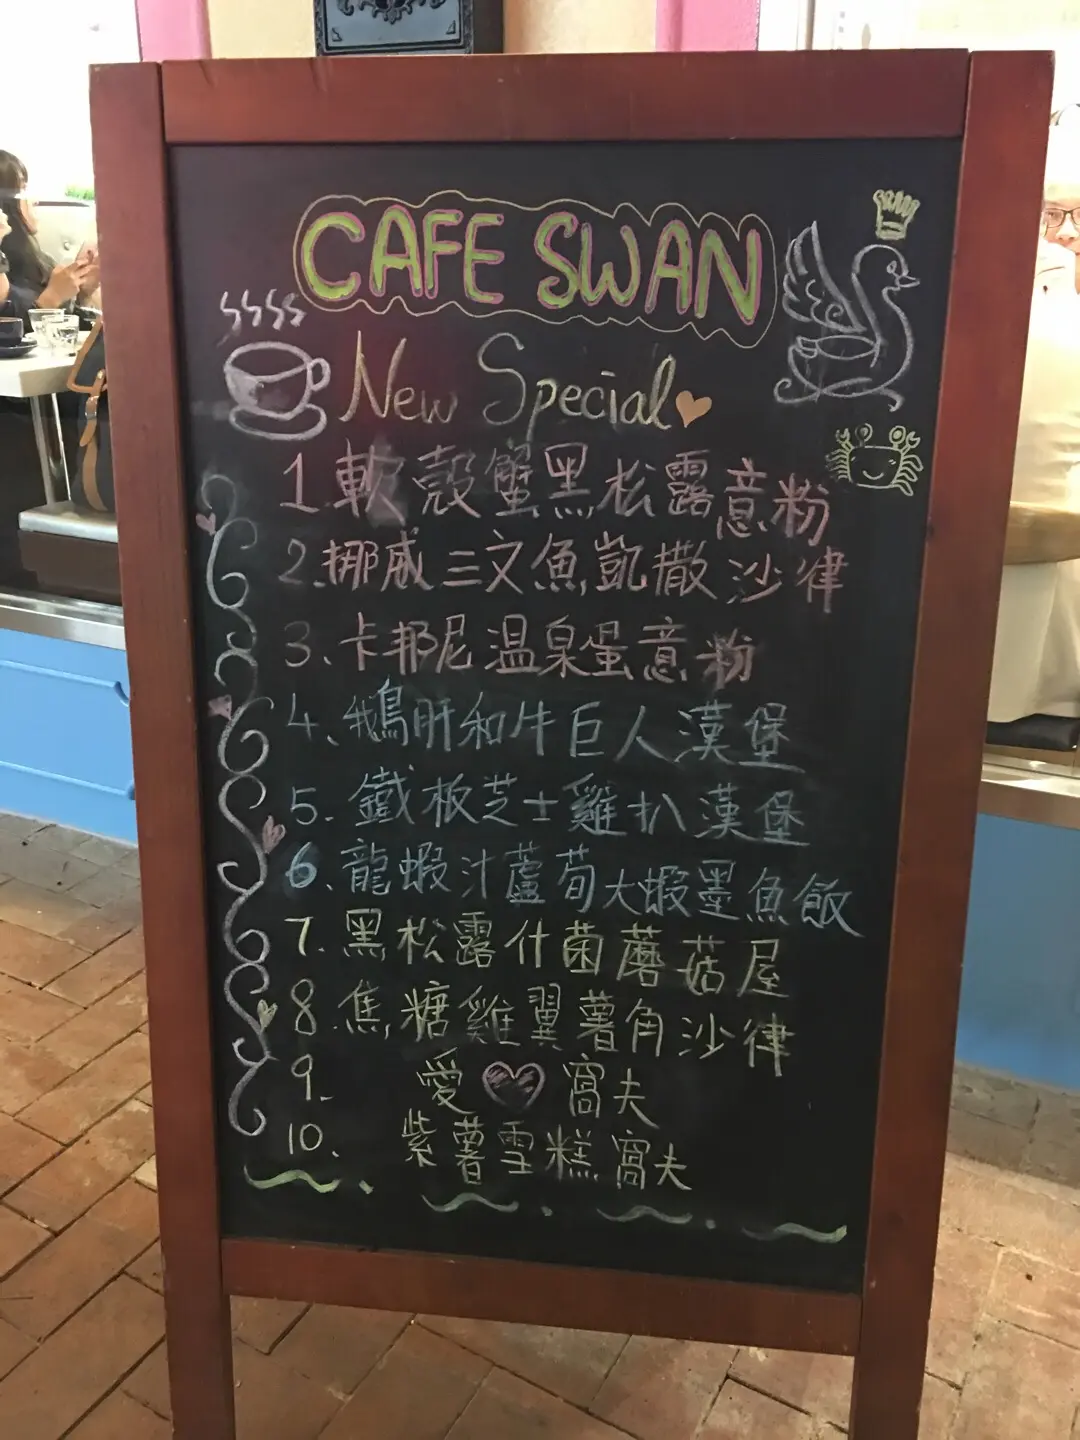 CAFE SWAN
New Special
1. 軟殼蟹黑松露意粉
2. 挪威三文魚凱撒沙律
3、卡邦尼温泉蛋意粉
4、鵝肝和牛巨人漢堡
5. 鐵板芝士雞扒漢堡
6、龍蝦汁蘆荀大蝦墨魚飯
7. 黑松露什菌蘑菇屋
8. 焦糖雞翼薯角沙律
9. 愛 窩夫
10、紫薯雪糕窩夫